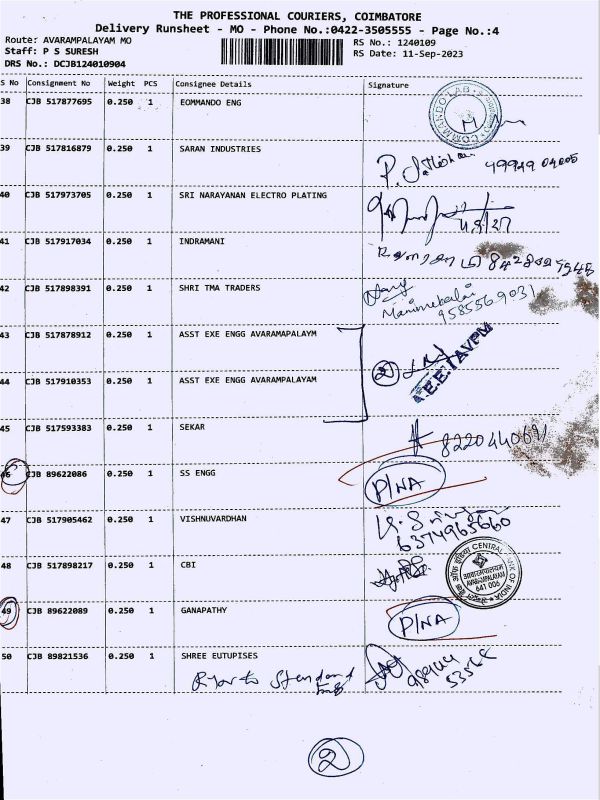 THE PROFESSIONAL COURIERS, COIMBATORE
Delivery Runsheet - MO - Phone No.:0422-3505555 - Page No.:4
Route: AVARAMPALAYAM MO
Staff: P S SURESH
DRS No.: DCJB124010904
RS No.: 1240109
RS Date: 11-Sep-2023
S No Consignment No Weight PCS Consignee Details Signature
38 CJB 517877695 0.250 1 EOMMANDO ENG
39 CJB 517816879 0.250 1 SARAN INDUSTRIES
40 CJB 517973705 0.250 1 SRI NARAYANAN ELECTRO PLATING
41 CJB 517917034 0.250 1 INDRAMANI
42 CJB 517898391 0.250 1 SHRI TMA TRADERS
Manimekalai
9585569031
43 CJB 517878912 0.250 1 ASST EXE ENGG AVARAMAPALAYM
2 A.E.E. / AVPM
44 CJB 517910353 0.250 1 ASST EXE ENGG AVARAMPALAYAM
45 CJB 517593383 0.250 1 SEKAR 8220440691
46 CJB 89622086 0.250 1 SS ENGG P/NA
47 CJB 517905462 0.250 1 VISHNUVARDHAN
6374965660
48 CJB 517898217 0.250 1 CBI
CENTRAL BANK OF INDIA
AVARAMPALAYAM
641 006
49 CJB 89622089 0.250 1 GANAPATHY P/NA
50 CJB 89821536 0.250 1 SHREE EUTUPISES
2